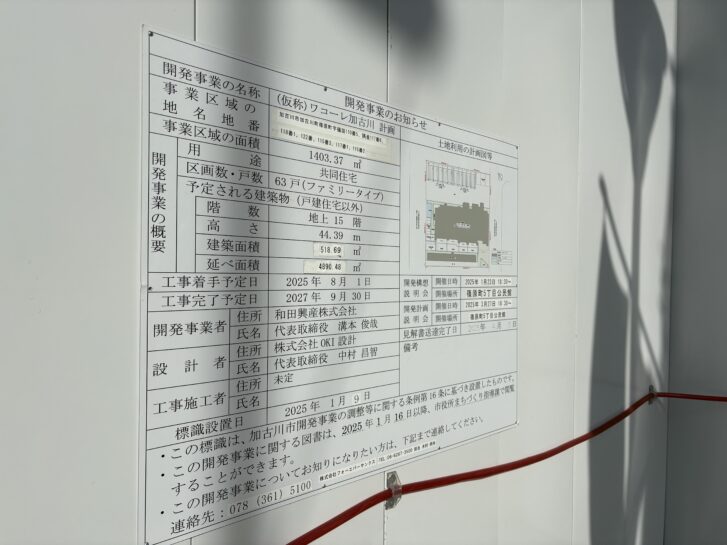 開発事業のお知らせ
開発事業の名称 (仮称)ワコーレ加古川 計画
事業区域の地名地番
事業区域の面積 1403.37 ㎡
開発事業の概要
用途 共同住宅
区画数・戸数 63戸(ファミリータイプ)
予定される建築物(戸建住宅以外)
階数 地上15階
高さ 44.39 m
建築面積 518.69 ㎡
延べ面積 4890.48 ㎡
工事着手予定日 2025年 8月 1日
工事完了予定日 2027年 9月30日
開発事業者 住所 和田興産株式会社
氏名 代表取締役 溝本 俊哉
設計者 住所 株式会社OKI設計
氏名 代表取締役 中村 昌智
工事施工者 住所 未定
氏名
標識設置日 2025年 1月 9日
土地利用の計画図等
開発構想説明会 開催日時 2025年 1月23日 18:30~
開催場所 篠原町5丁目公民館
開発計画説明会 開催日時 2025年 3月27日 18:30~
開催場所 篠原町5丁目公民館
見解書送達完了日
備考
・この標識は、加古川市開発事業の調整等に関する条例第16条に基づき設置したものです。
・この開発事業に関する図書は、2025年1月16日以降、市役所まちづくり指導課で閲覧
することができます。
・この開発事業についてお知りになりたい方は、下記まで連絡してください。
連絡先:078 (361) 5100